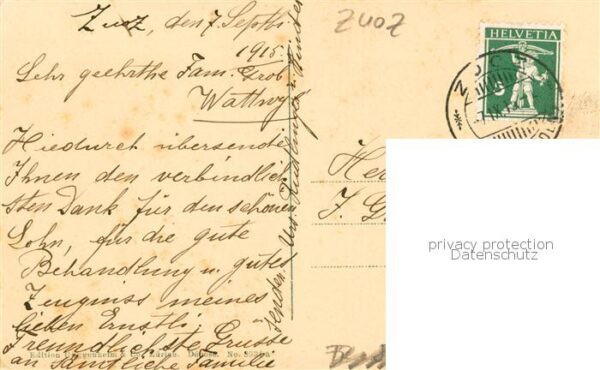 Zuoz, den 7. Septbr.
1915.
Sehr geehrthe Fam. Grob
Wattwyl
Hiedurch übersende
Ihnen den verbindlich
sten Dank für den schönen
Lohn, für die gute
Behandlung u. gutes
Zeugniss meines
lieben Ernstli,
Freundlichste Grüsse
an Sämtliche Familie
Edition Guggenheim & Co. Zürich.
Sender:
Zuoz
HELVETIA
ZUOZ
He
J. G
privacy protection
Datenschutz